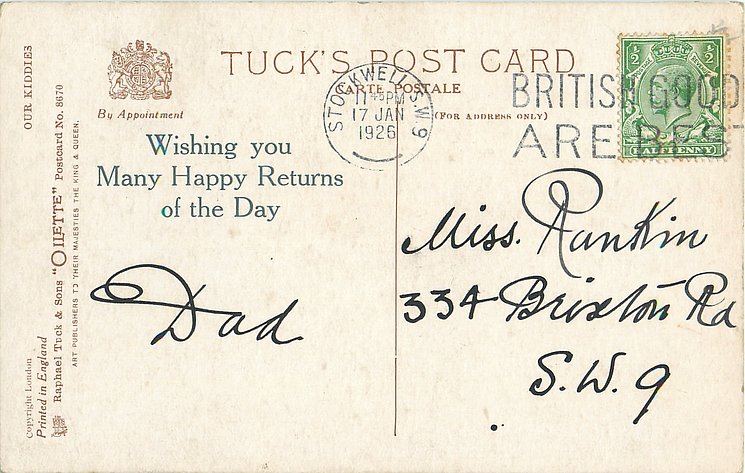 TUCK'S POST CARD
CARTE POSTALE
(FOR ADDRESS ONLY)
By Appointment
STOCKWELL S.W.9
11 45 PM
17 JAN
1926
BRITISH GOODS
ARE BEST
1/2 1/2
HALFPENNY
Wishing you
Many Happy Returns
of the Day
Dad
Miss. Rankin
334 Brixton Rd
S.W. 9
OUR KIDDIES
Raphael Tuck & Sons "OILETTE" Postcard No. 8670
ART PUBLISHERS TO THEIR MAJESTIES THE KING & QUEEN.
Copyright London
Printed in England